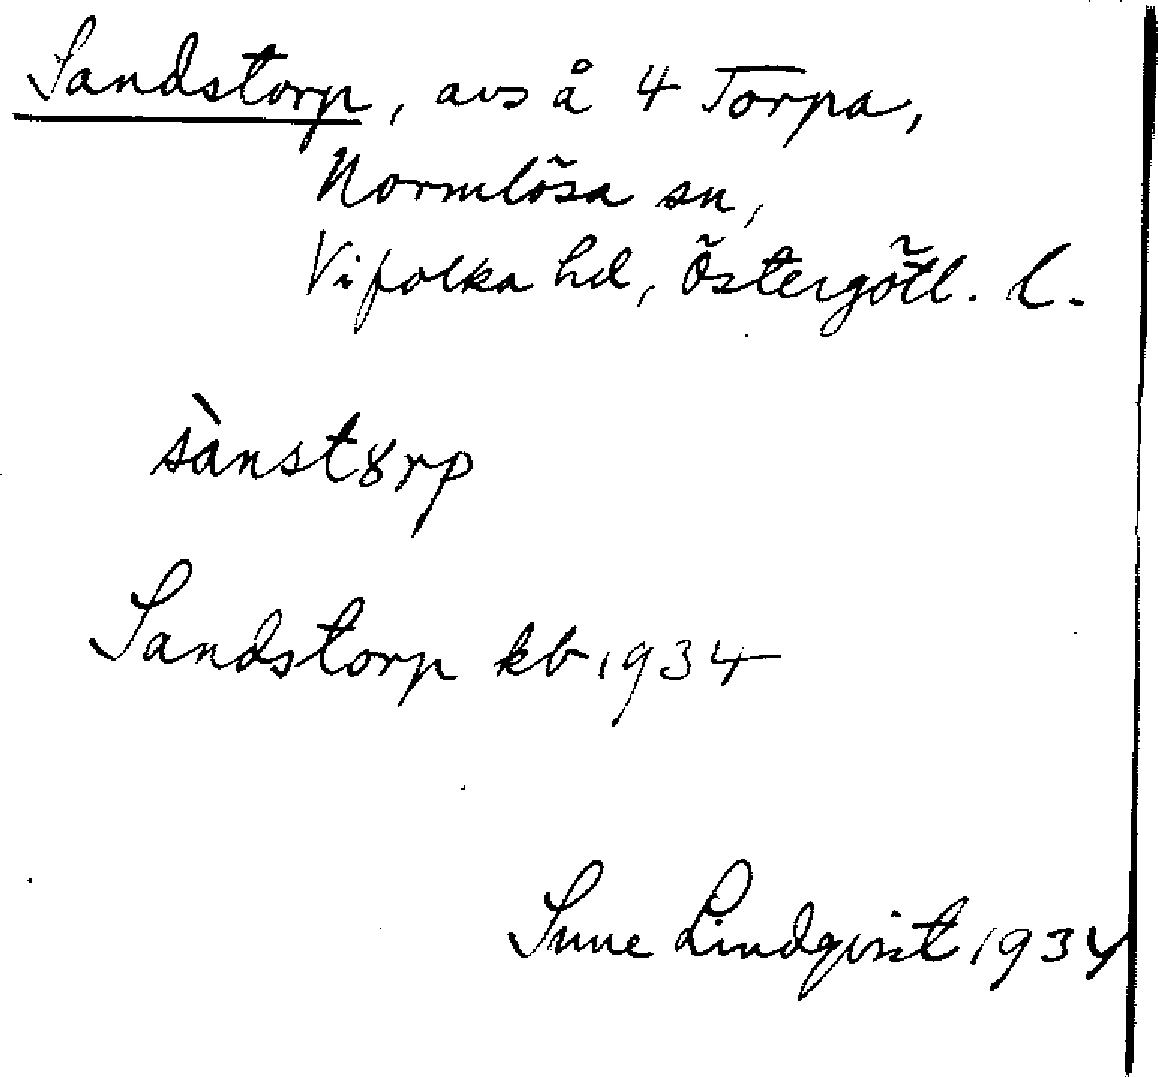 Sandstorp, avs å 4 Torpa,
Normlösa sn,
Vifolka hd, Östergötl. l.
sànstȣrp
Sandstorp kb 1934
Sune Lindqvist 1934